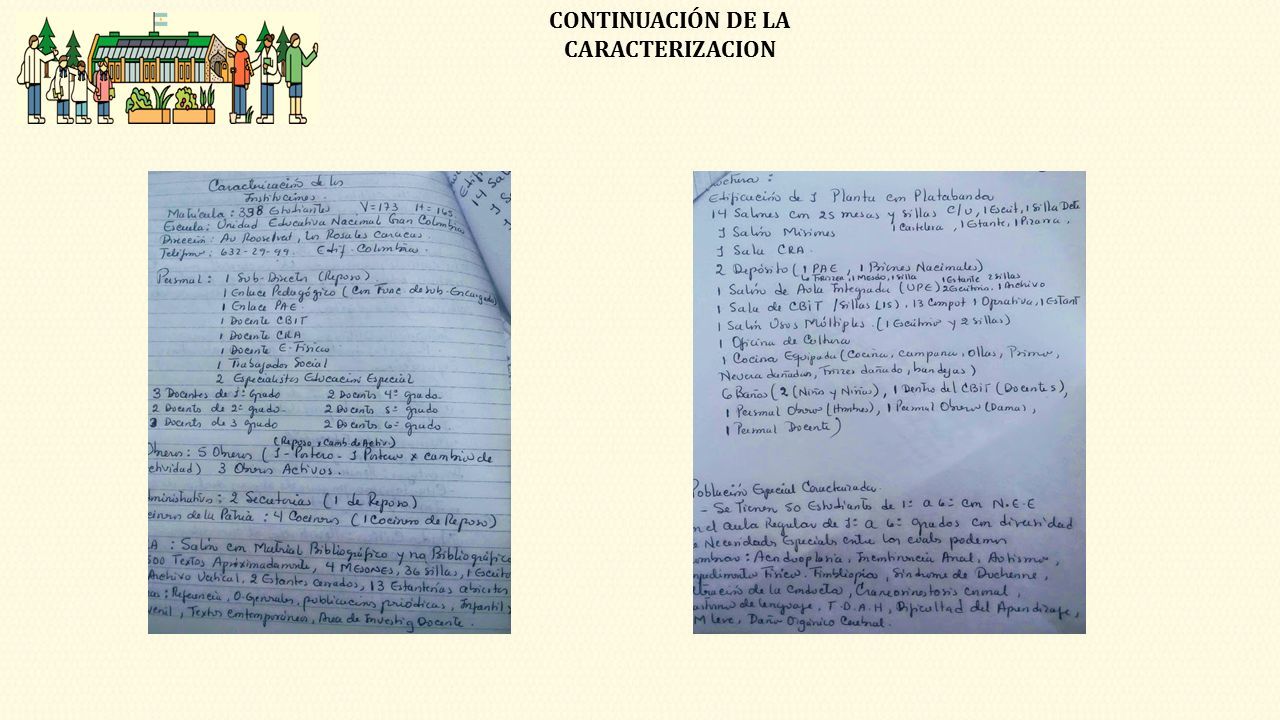 CONTINUACIÓN DE LA
CARACTERIZACION
Caracterización de las
Instituciones.
Matrícula: 338 Estudiantes V=173 H=165
Escuela: Unidad Educativa Nacional Gran Colombia
Dirección: Av Roosevelt, Los Rosales Caracas
Teléfono: 632-29-49. Edif. Colombia.
Personal: 1 Sub-Director (Reposo)
1 Enlace Pedagógico (Con Func de sub-Encargada)
1 Enlace PAE.
1 Docente CBIT
1 Docente CRA
1 Docente E-Física
1 Trabajador Social
2 Especialistas Educación Especial
3 Docentes de 1º Grado 2 Docents 4º grado
2 Docents de 2º grado 2 Docents 5º grado
Docents de 3 grado 2 Docents 6º grado.
(Reposo x Camb de Activ.)
Obreros: 5 Obreros (1-Portero - 1 Portero x cambio de
ctividad) 3 Obreros Activos.
dministrativo: 2 Secretarias (1 de Reposo)
cineros de la Patria: 4 Cocineros (1 Cocinero de Reposo)
A: Salón con Material Bibliográfico y no Bibliográfico
500 Textos Aproximadamente, 4 MESONES, 36 sillas, 1 Escrito
Archivo Vertical, 2 Estantes cerrados, 13 Estanterías abiertas
as: Referencia, O-Generales, publicaciones periódicas, Infantil y
venil, Textos contemporáneos, Área de Investig Docente.
Edifi
14 Sal
ructura:
Edificación de 1 Planta con Platabanda
14 Salones con 25 mesas y sillas c/u, 1 Escrit, 1 silla Docte
1 Cartelera, 1 Estante, 1 Pizarra.
1 Salón Misiones
1 Sala CRA.
2 Depósito (1 PAE, 1 Bienes Nacionales)
1 Estante 2 sillas
1 Salón de Aula Integrada (UPE) 2 Escritorio. 1 Archivo
1 Sala de CBIT /Sillas (15). 13 Comput 1 Operativa, 1 Estant
1 Salón Usos Múltiples. (1 Escritorio y 2 sillas)
1 Oficina de Cultura
1 Cocina Equipada (Cocina, campana, Ollas, Primo,
Nevera dañadas, Frizer dañado, bandejas)
6 Baños (2 (Niños y Niñas), 1 Dentro del CBIT (Docentes),
1 Personal Obrero (Hombres), 1 Personal Obrero (Damas),
1 Personal Docente)
Población Especial Caracterizada.
- Se Tienen 50 Estudiantes de 1º a 6º con N.E.E
n el aula Regular de 1º a 6º grados con diversidad
e Necesidades Especiales entre los cuales podemos
ombrar: Acondroplasia, Incontinencia Anal, Autismo,
mpedimento Físico. Síndrome de Duchenne,
lteración de la Conducta, Craneosinostosis coronal,
astorno de lenguaje, T.D.A.H, Dificultad del Aprendizaje,
M Leve, Daño Orgánico Cerebral.